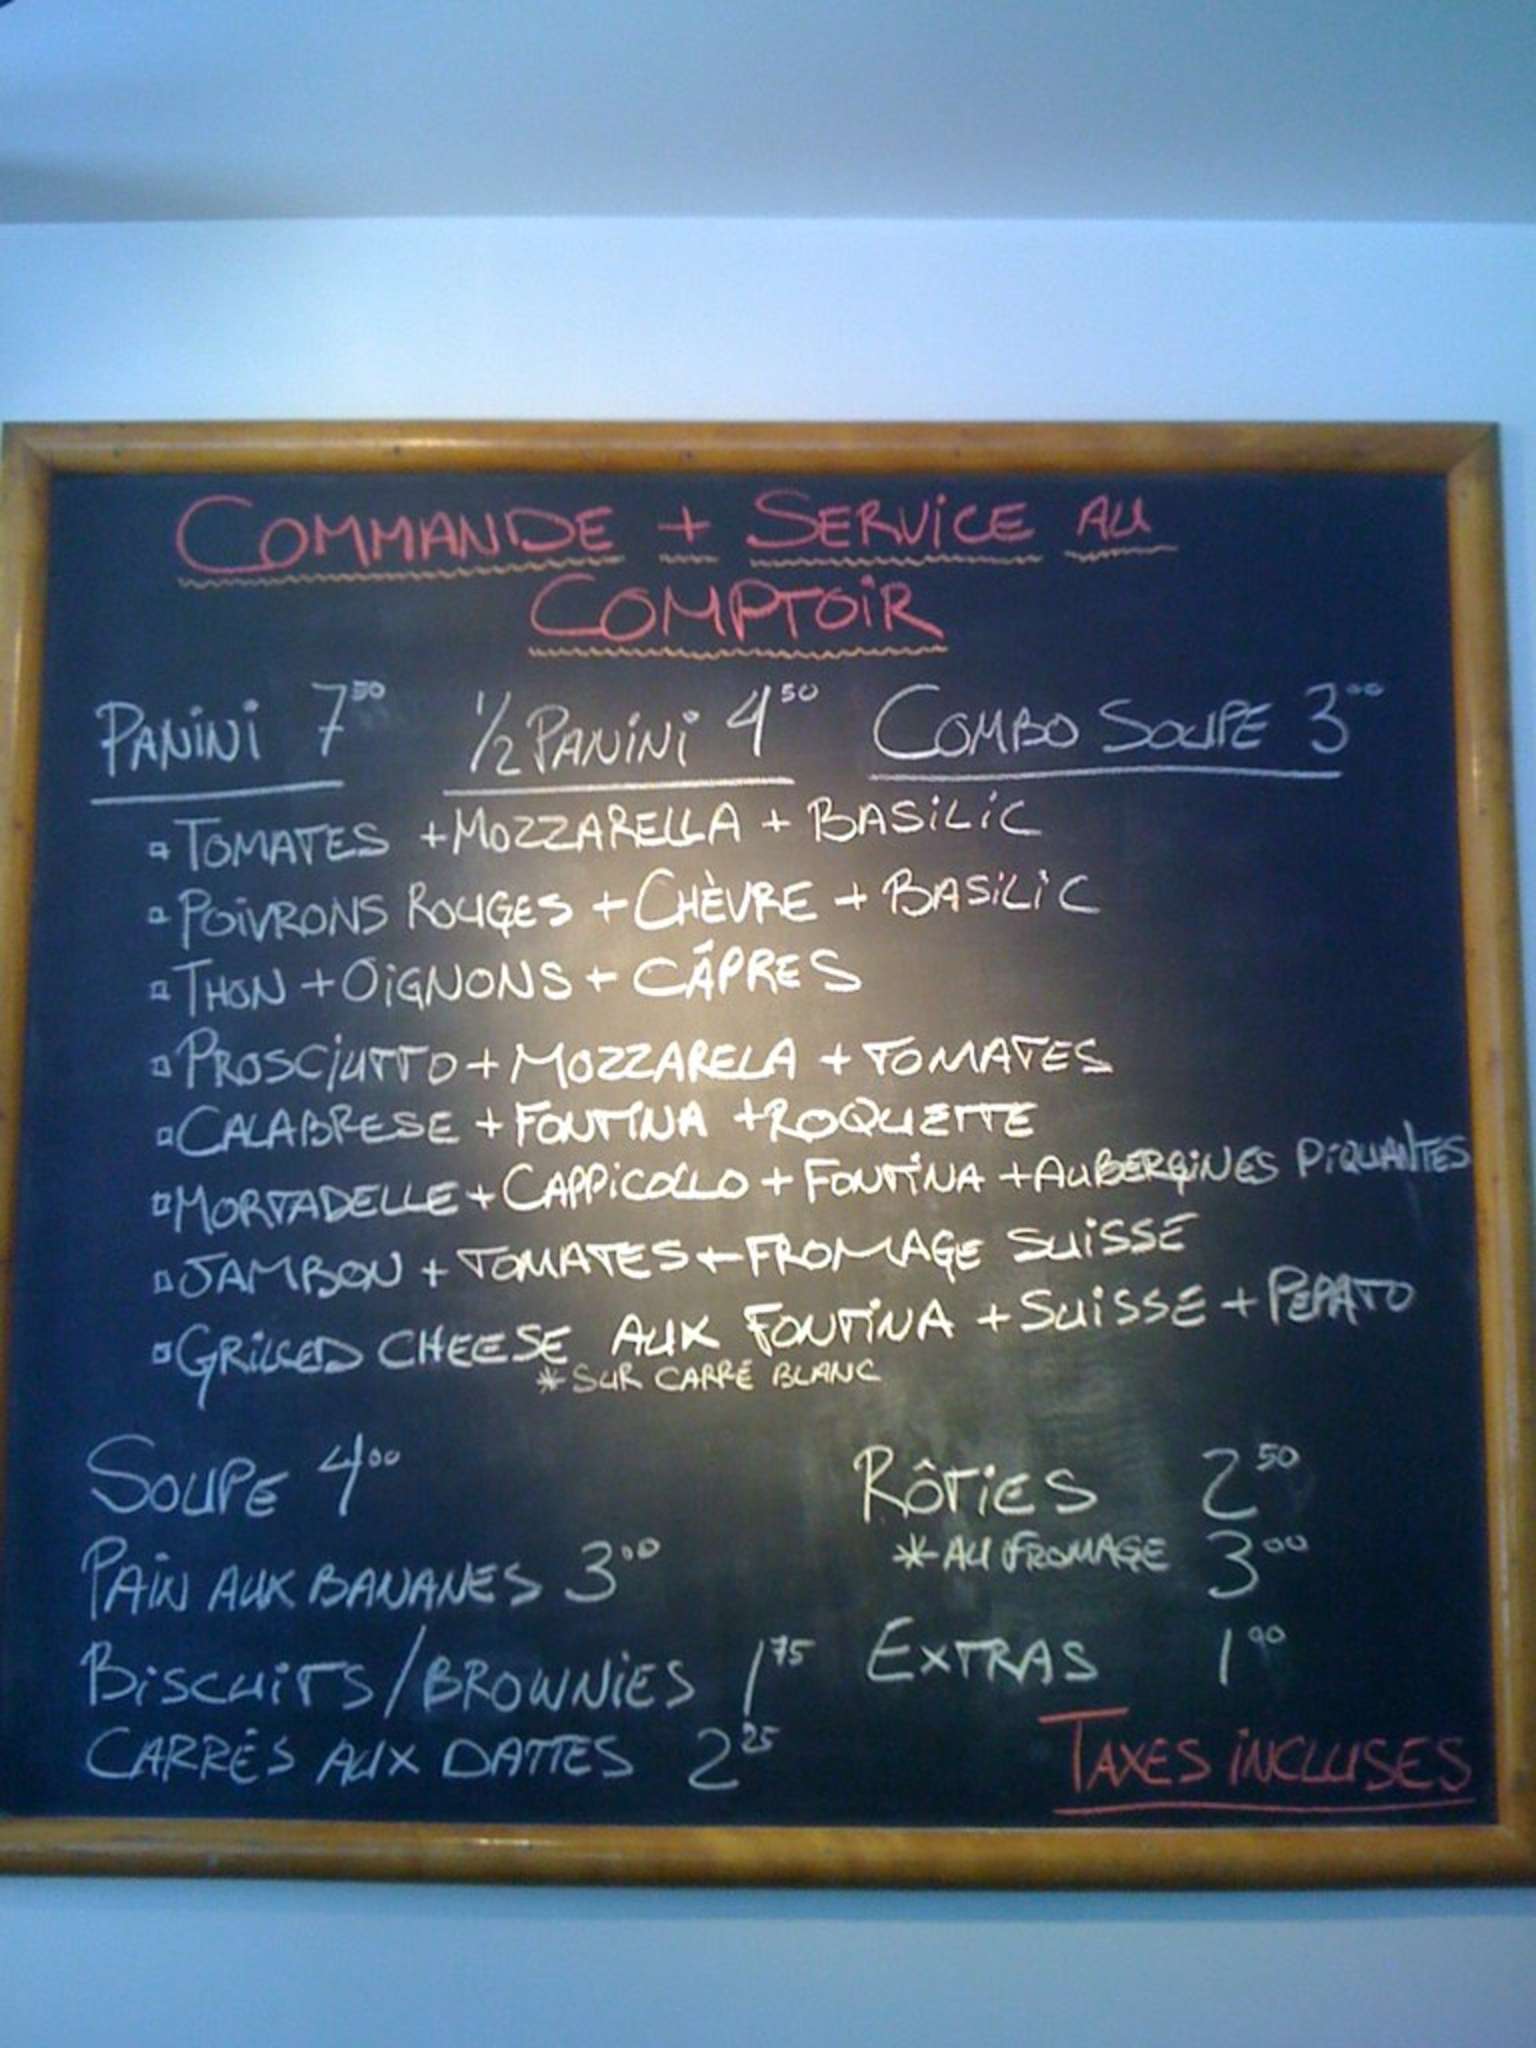 COMMANDE + SERVICE AU
COMPTOIR
PANINI 7 50 1/2 PANINI 4 50 COMBO SOUPE 3 00
TOMATES + MOZZARELLA + BASILIC
POIVRONS ROUGES + CHÈVRE + BASILIC
THON + OIGNONS + CÂPRES
PROSCIUTTO + MOZZARELA + TOMATES
CALABRESE + FONTINA + ROQUETTE
MORTADELLE + CAPPICOLLO + FONTINA + AUBERGINES PIQUANTES
JAMBON + TOMATES + FROMAGE SUISSE
GRILLED CHEESE AUX FONTINA + SUISSE + PEPATO
* SUR CARRÉ BLANC
SOUPE 4 00 RÔTIES 2 50
* AU FROMAGE 3 00
PAIN AUX BANANES 3 00
BISCUITS / BROWNIES 1 75 EXTRAS 1 90
CARRÉS AUX DATTES 2 25
TAXES INCLUSES